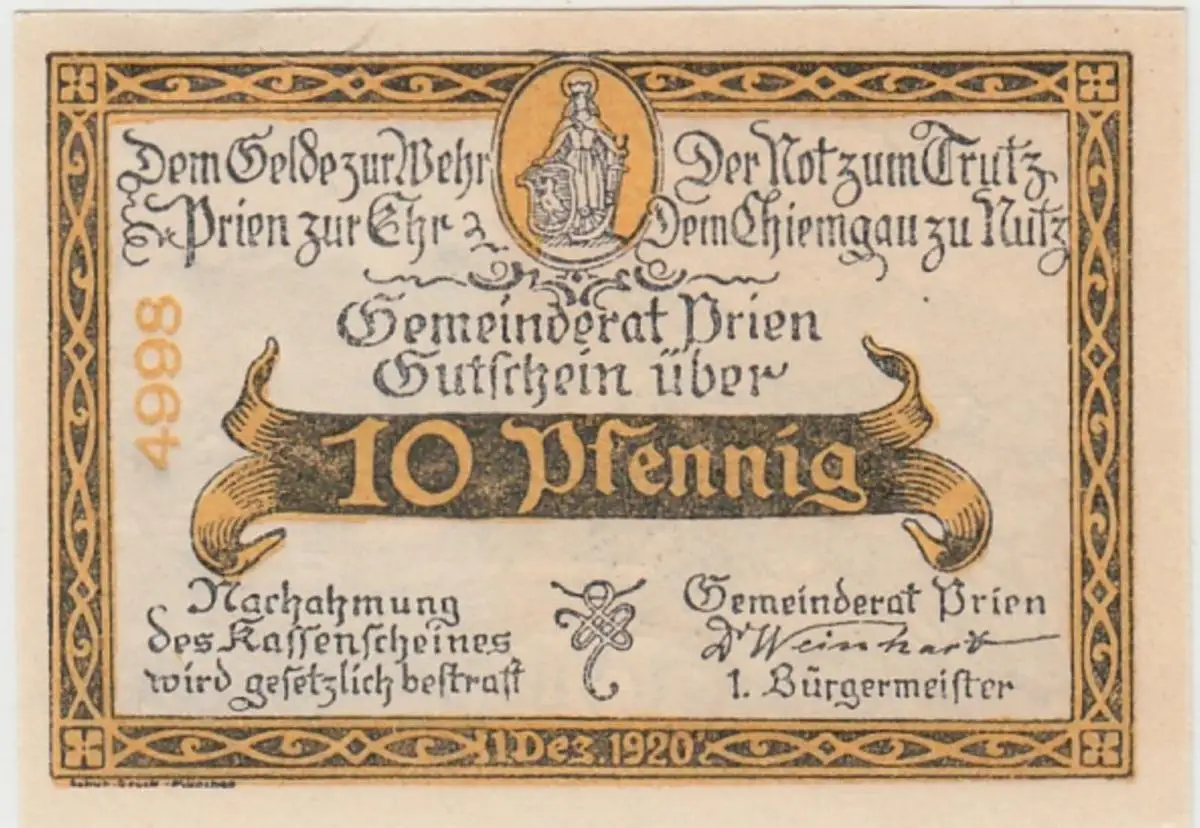 Dem Gelde zur Wehr
Prien zur Ehr
Der Not zum Trutz
Dem Chiemgau zu Nutz
Gemeinderat Prien
Gutschein über
10 Pfennig
4998
Nachahmung
des Kassenscheines
wird gesetzlich bestraft
Gemeinderat Prien
Dr Weinhart
1. Bürgermeister
1. Dez. 1920
Schuh-Druck-München